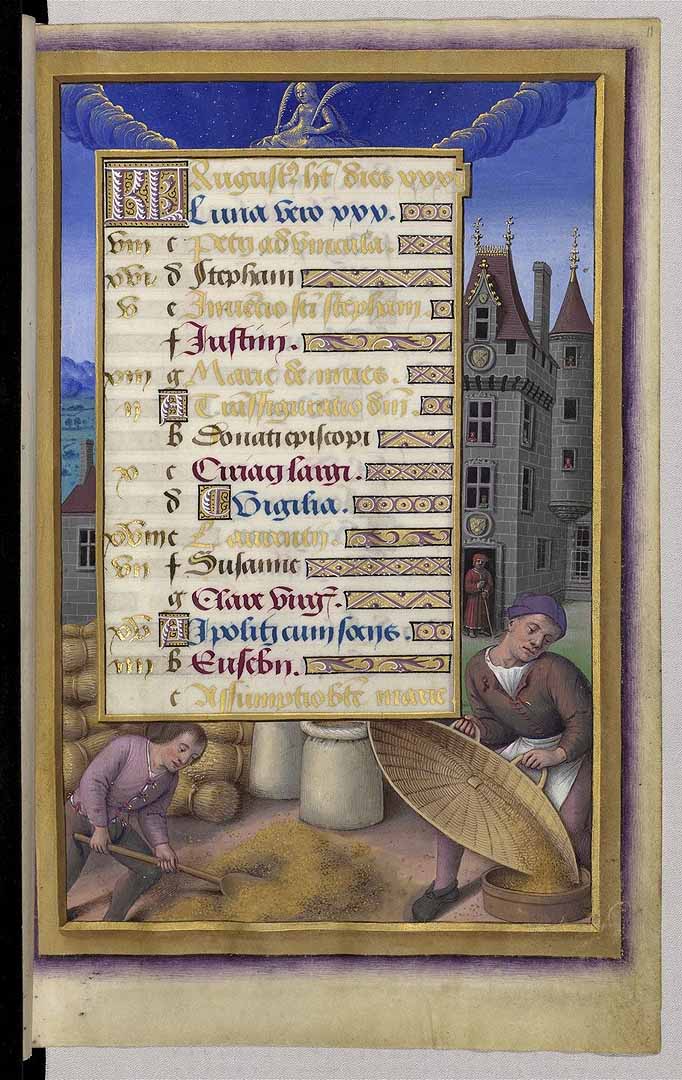 KL August⁹ ht dies xxxi
Luna vero xxx.
viii c Petri ad vincula.
xvi d Stephani
v e Inuētio sci stephani.
f Iustini.
xiii g Marie de niues.
ii A Trāsfiguratio dn̄i.
b Donati episcopi
x c Ciriaci largi.
d E Vigilia.
xviii e Laurentii.
vii f Susanne
g Clare virg̃.
xv A Ipoliti cum socijs.
iiii b Eusebii.
c Assumptio bt̄e marie